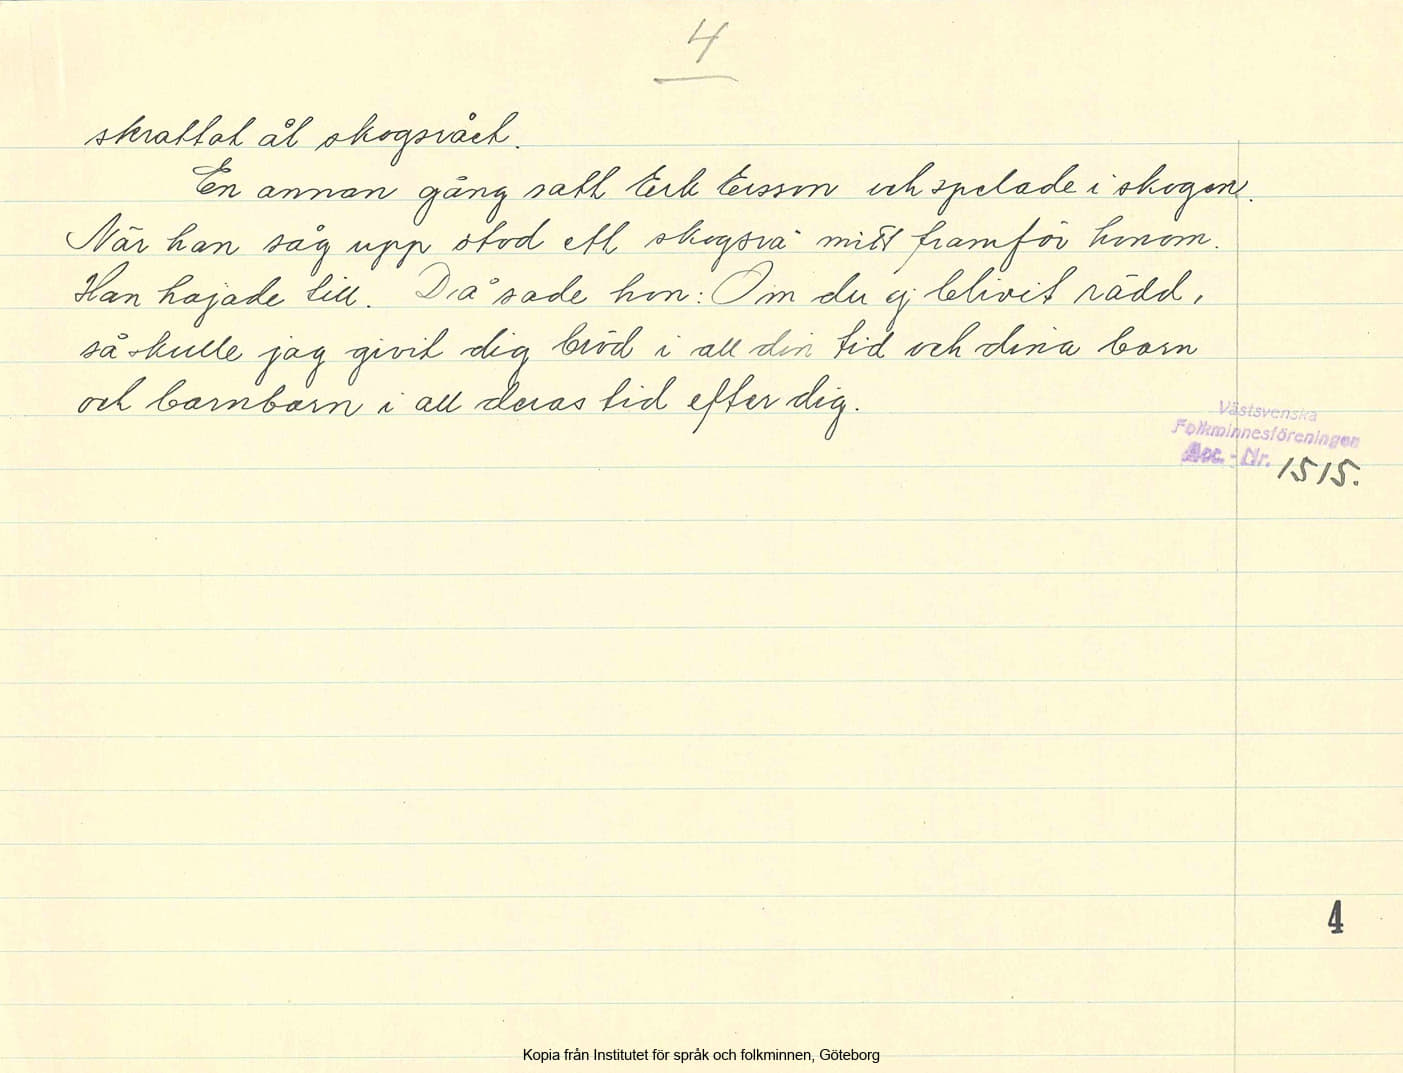 4
skrattat åt skogsrået.
En annan gång satt Erik Ersson och spelade i skogen.
När han såg upp stod ett skogsrå mitt framför honom.
Han hajade till. Då sade hon: Om du ej blivit rädd,
så skulle jag givit dig bröd i all din tid och dina barn
och barnbarn i all deras tid efter dig.
Västsvenska
Folkminnesföreningen
Acc. - Nr. 1515.
4
Kopia från Institutet för språk och folkminnen, Göteborg